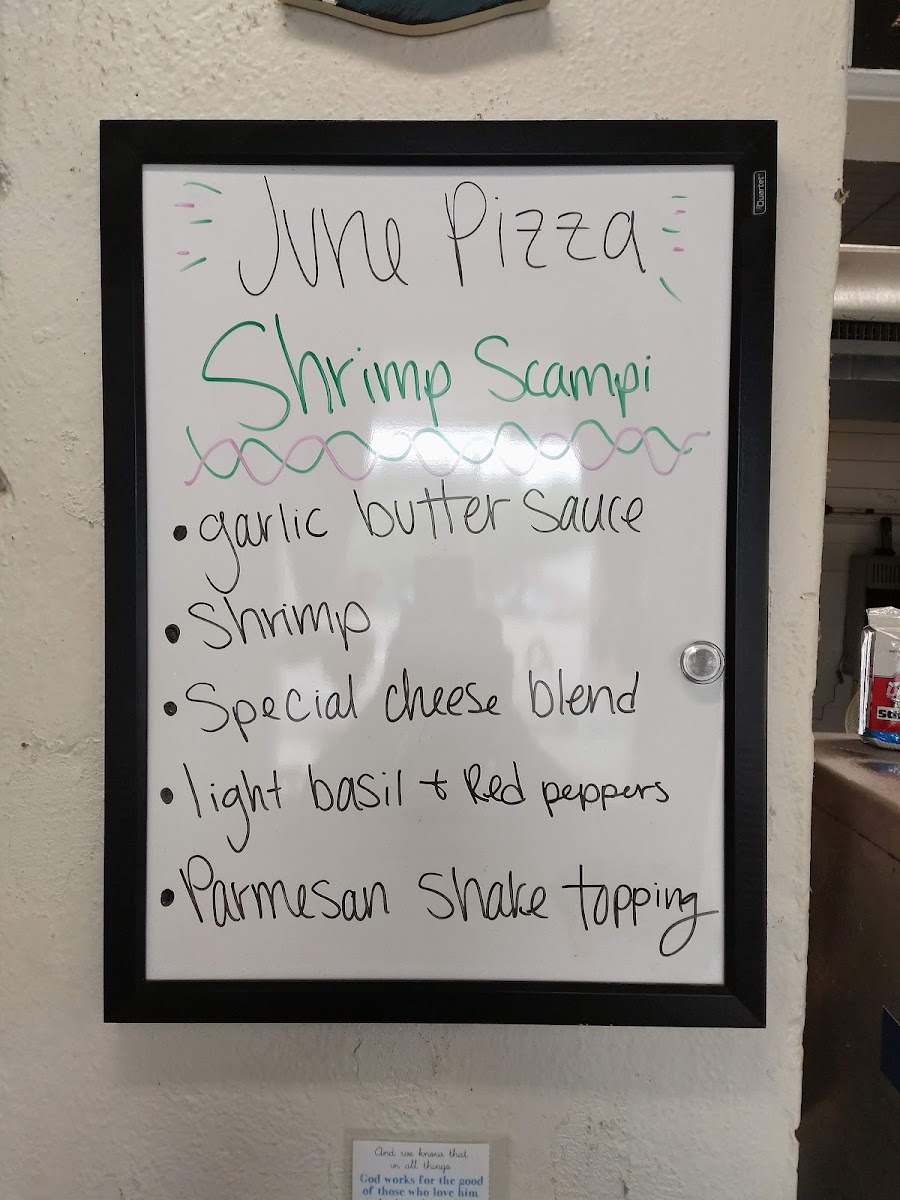 Quartet
June Pizza
Shrimp Scampi
• garlic butter sauce
• Shrimp
• Special cheese blend
• light basil + Red peppers
• Parmesan Shake topping
And we know that
in all things
God works for the good
of those who love him